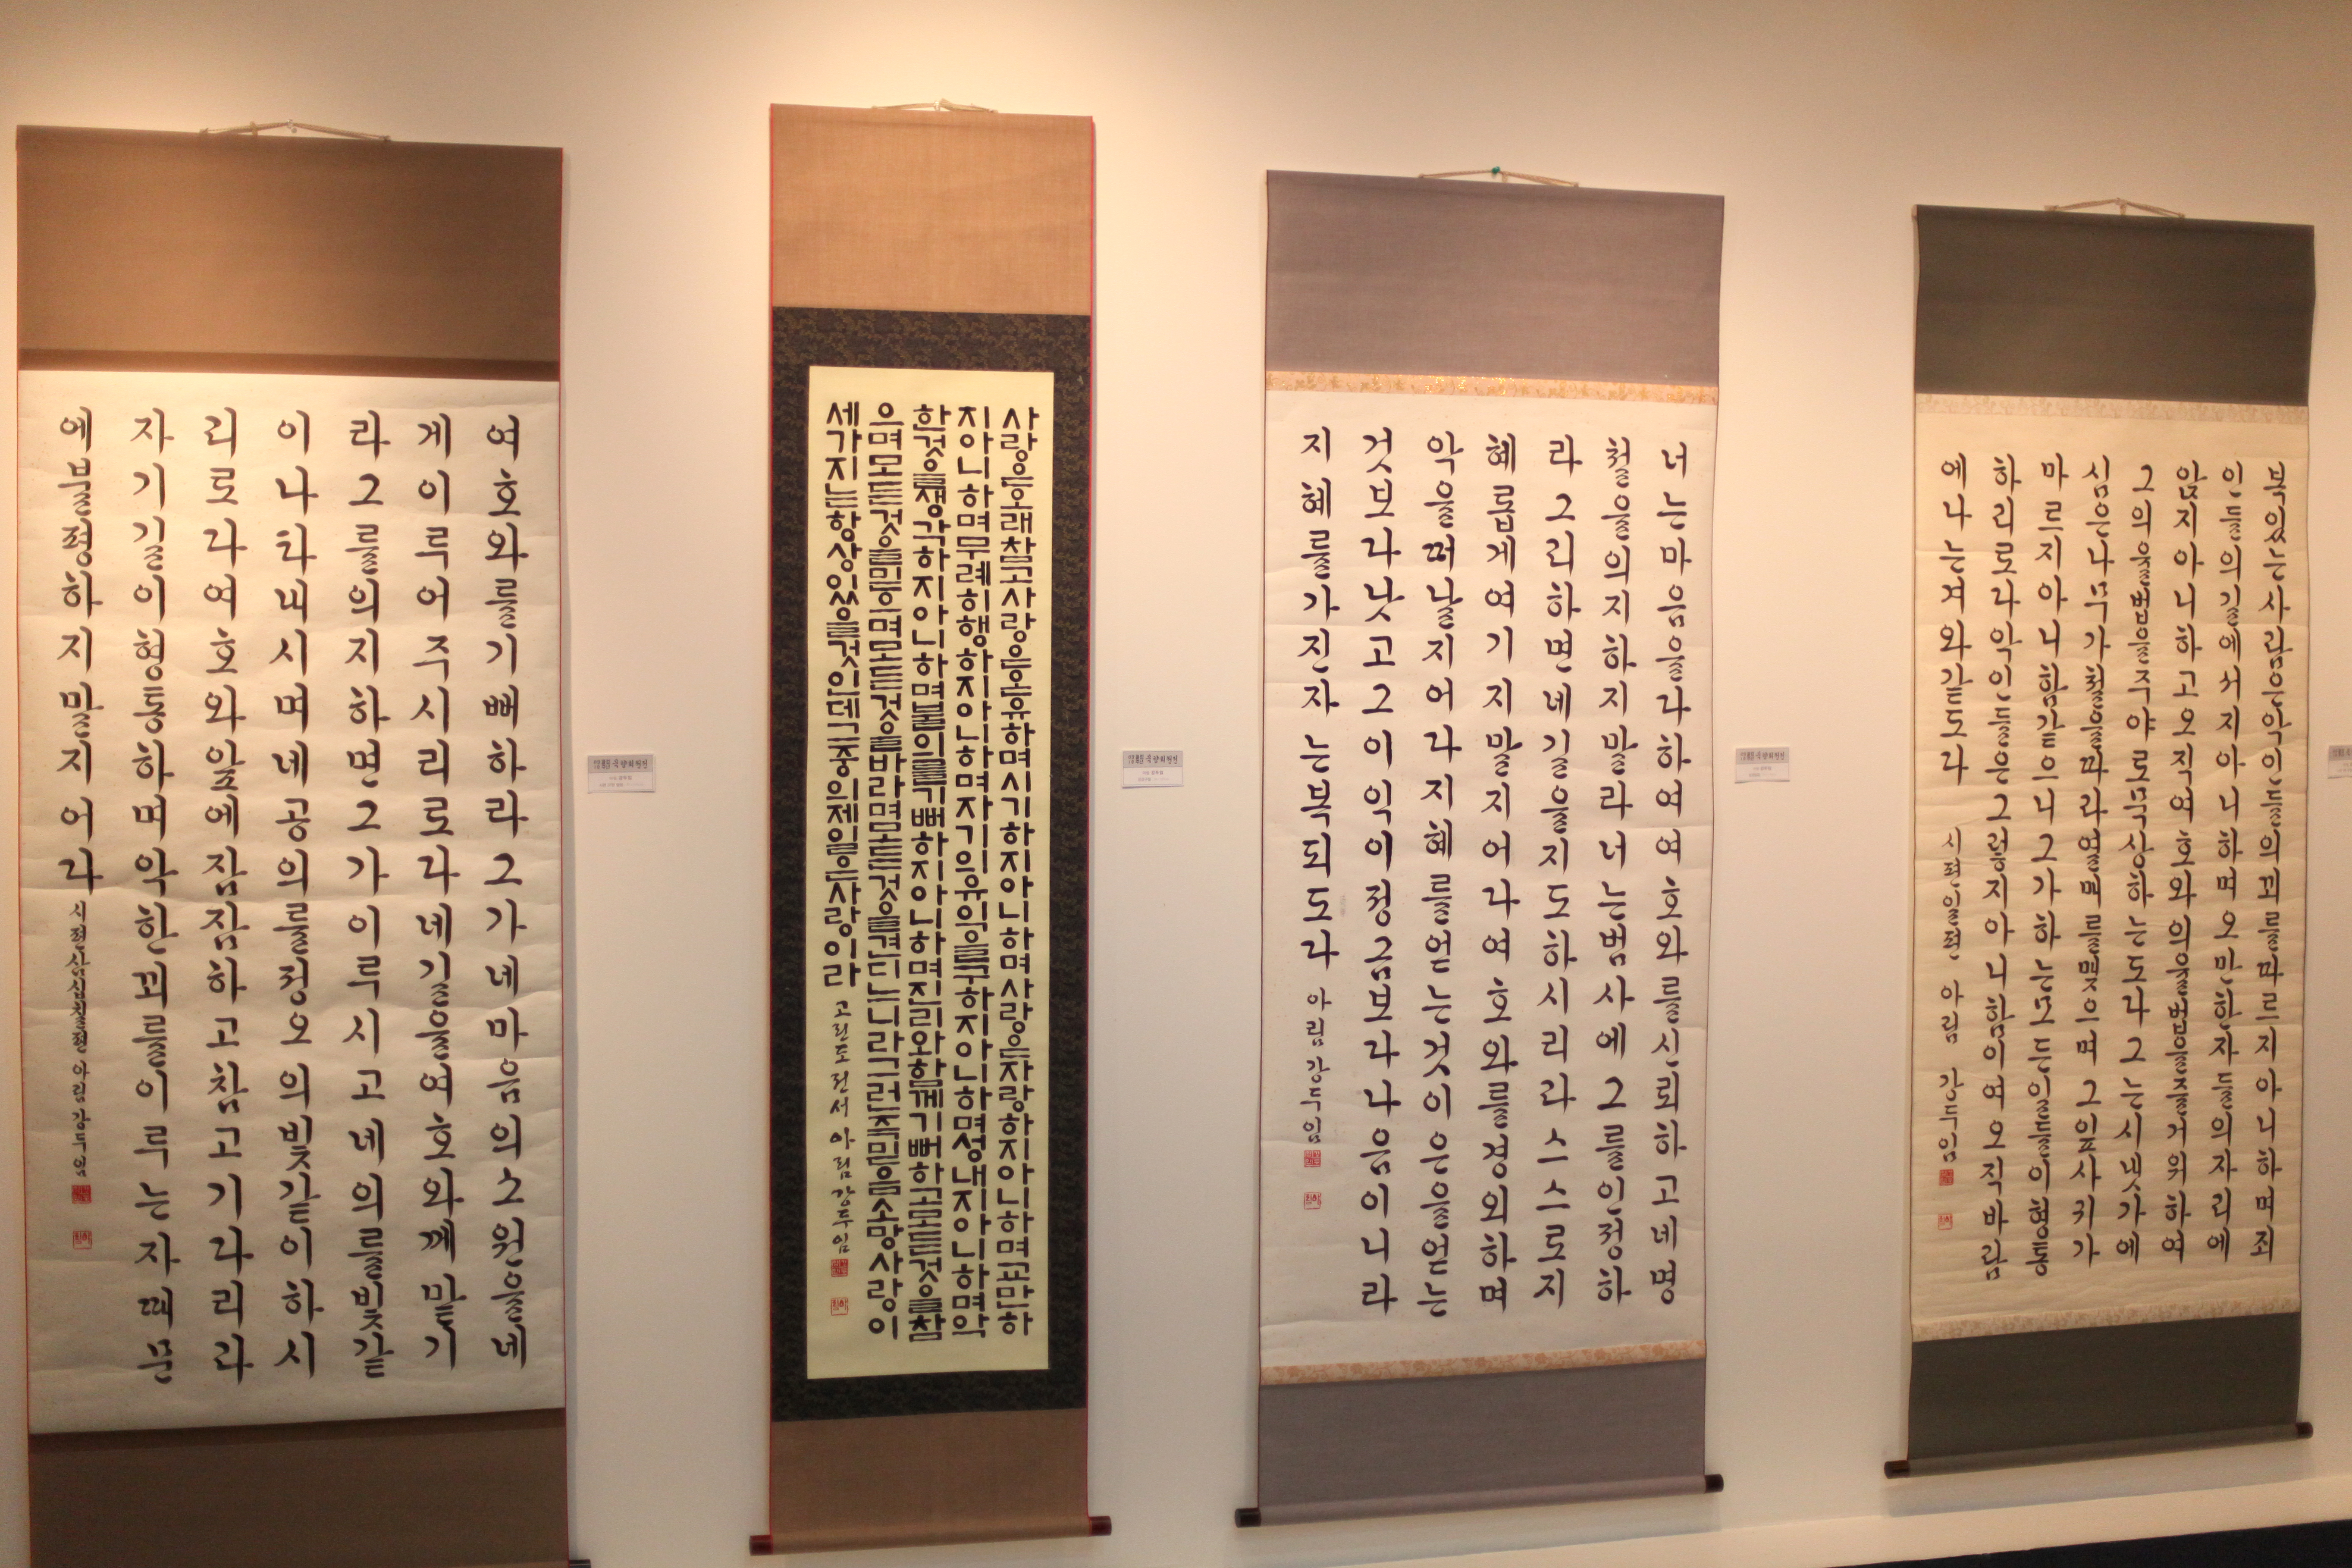 여호와를기뻐하라그가네마음의소원을네
게이루어주시리로다네길을여호와께맡기
라그를의지하면그가이루시고네의를빛같
이나타내시며네공의를정오의빛같이하시
리로다여호와앞에잠잠하고참고기다리라
자기길이형통하며악한꾀를이루는자때문
에불평하지말지어다 시편삼십칠편 아림강두임
사랑은오래참고사랑은온유하며시기하지아니하며사랑은자랑하지아니하며교만하
지아니하며무례히행하지아니하며자기의유익을구하지아니하며성내지아니하며악
한것을생각하지아니하며불의를기뻐하지아니하며진리와함께기뻐하고모든것을참
으며모든것을믿으며모든것을바라며모든것을견디느니라그런즉믿음소망사랑이
세가지는항상있을것인데그중의제일은사랑이라 고린도전서 아림 강두임
너는마음을다하여여호와를신뢰하고네명
철을의지하지말라너는범사에그를인정하
라그리하면네길을지도하시리라스스로지
혜롭게여기지말지어다여호와를경외하며
악을떠날지어다지혜를얻는것이은을얻는
것보다낫고그이익이정금보다나음이니라
지혜를가진자는복되도다 아림 강두임
복있는사람은악인들의꾀를따르지아니하며죄
인들의길에서지아니하며오만한자들의자리에
앉지아니하고오직여호와의율법을즐거워하여
그의율법을주야로묵상하는도다그는시냇가에
심은나무가철을따라열매를맺으며그잎사귀가
마르지아니함같으니그가하는모든일들이형통
하리로다악인들은그렇지아니함이여오직바람
에나는겨와같도다 시편일편 아림 강두임